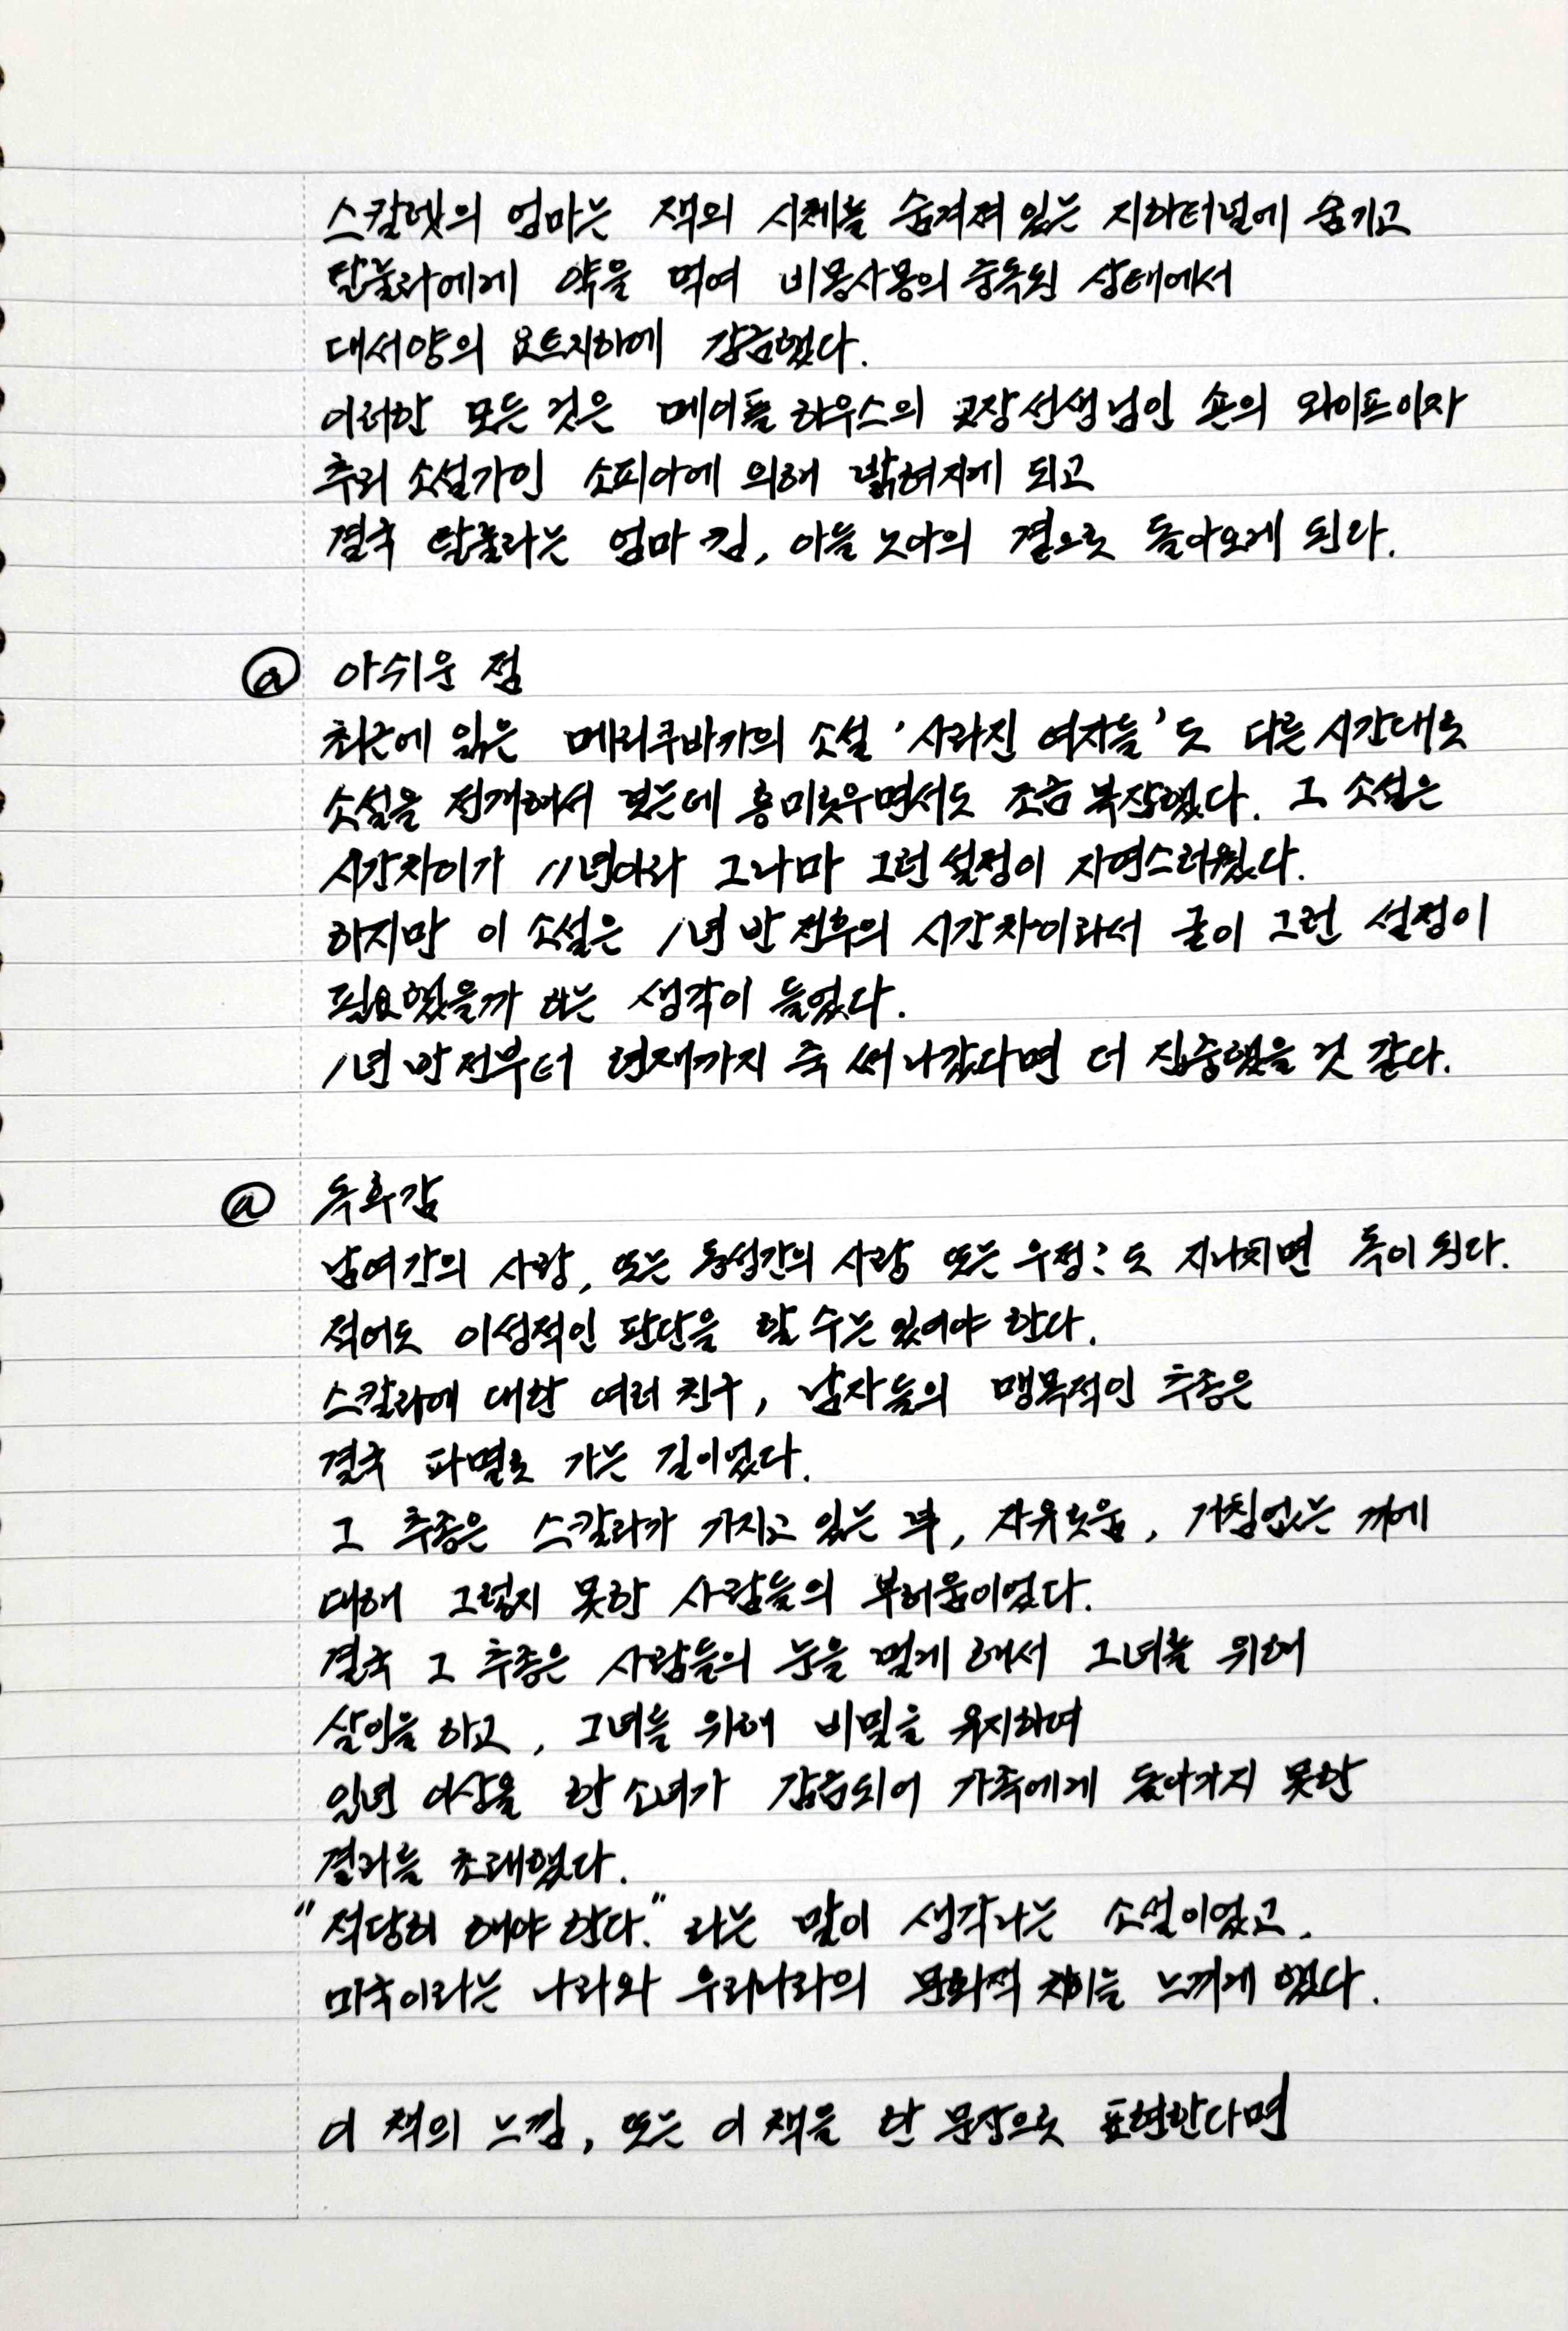 스칼렛의 엄마는 잭의 시체를 숨겨져 있는 지하터널에 숨기고
탈룰라에게 약을 먹여 비몽사몽의 중독된 상태에서
대서양의 요트지하에 감금했다.
이러한 모든 것은 메이폴 하우스의 교장선생님인 숀의 와이프이자
추리 소설가인 소피아에 의해 밝혀지게 되고
결국 탈룰라는 엄마 킴, 아들 노아의 곁으로 돌아오게 된다.
@ 아쉬운 점
최근에 읽은 메리쿠비카의 소설 '사라진 여자들'도 다른 시간대로
소설을 전개해서 보는데 흥미로우면서도 조금 복잡했다. 그 소설은
시간차이가 11년이라 그나마 그런 설정이 자연스러웠다.
하지만 이 소설은 1년 반 전후의 시간차이라서 굳이 그런 설정이
필요했을까 하는 생각이 들었다.
1년 반 전부터 현재까지 죽 써 나갔다면 더 집중했을 것 같다.
@ 독후감
남여간의 사랑, 또는 동성간의 사랑 또는 우정: 도 지나치면 독이 된다.
적어도 이성적인 판단을 할 수는 있어야 한다.
스칼라에 대한 여러 친구, 남자들의 맹목적인 추종은
결국 파멸로 가는 길이었다.
그 추종은 스칼라가 가지고 있는 부, 자유로움, 거침없는 끼에
대해 그렇지 못한 사람들의 부러움이었다.
결국 그 추종은 사람들의 눈을 멀게 해서 그녀를 위해
살인을 하고, 그녀를 위해 비밀을 유지하며
일년 이상을 한 소녀가 감금되어 가족에게 돌아가지 못한
결과를 초래했다.
"적당히 해야 한다." 라는 말이 생각나는 소설이었고,
미국이라는 나라와 우리나라의 문화적 차이를 느끼게 했다.
이 책의 느낌, 또는 이 책을 한 문장으로 표현한다면